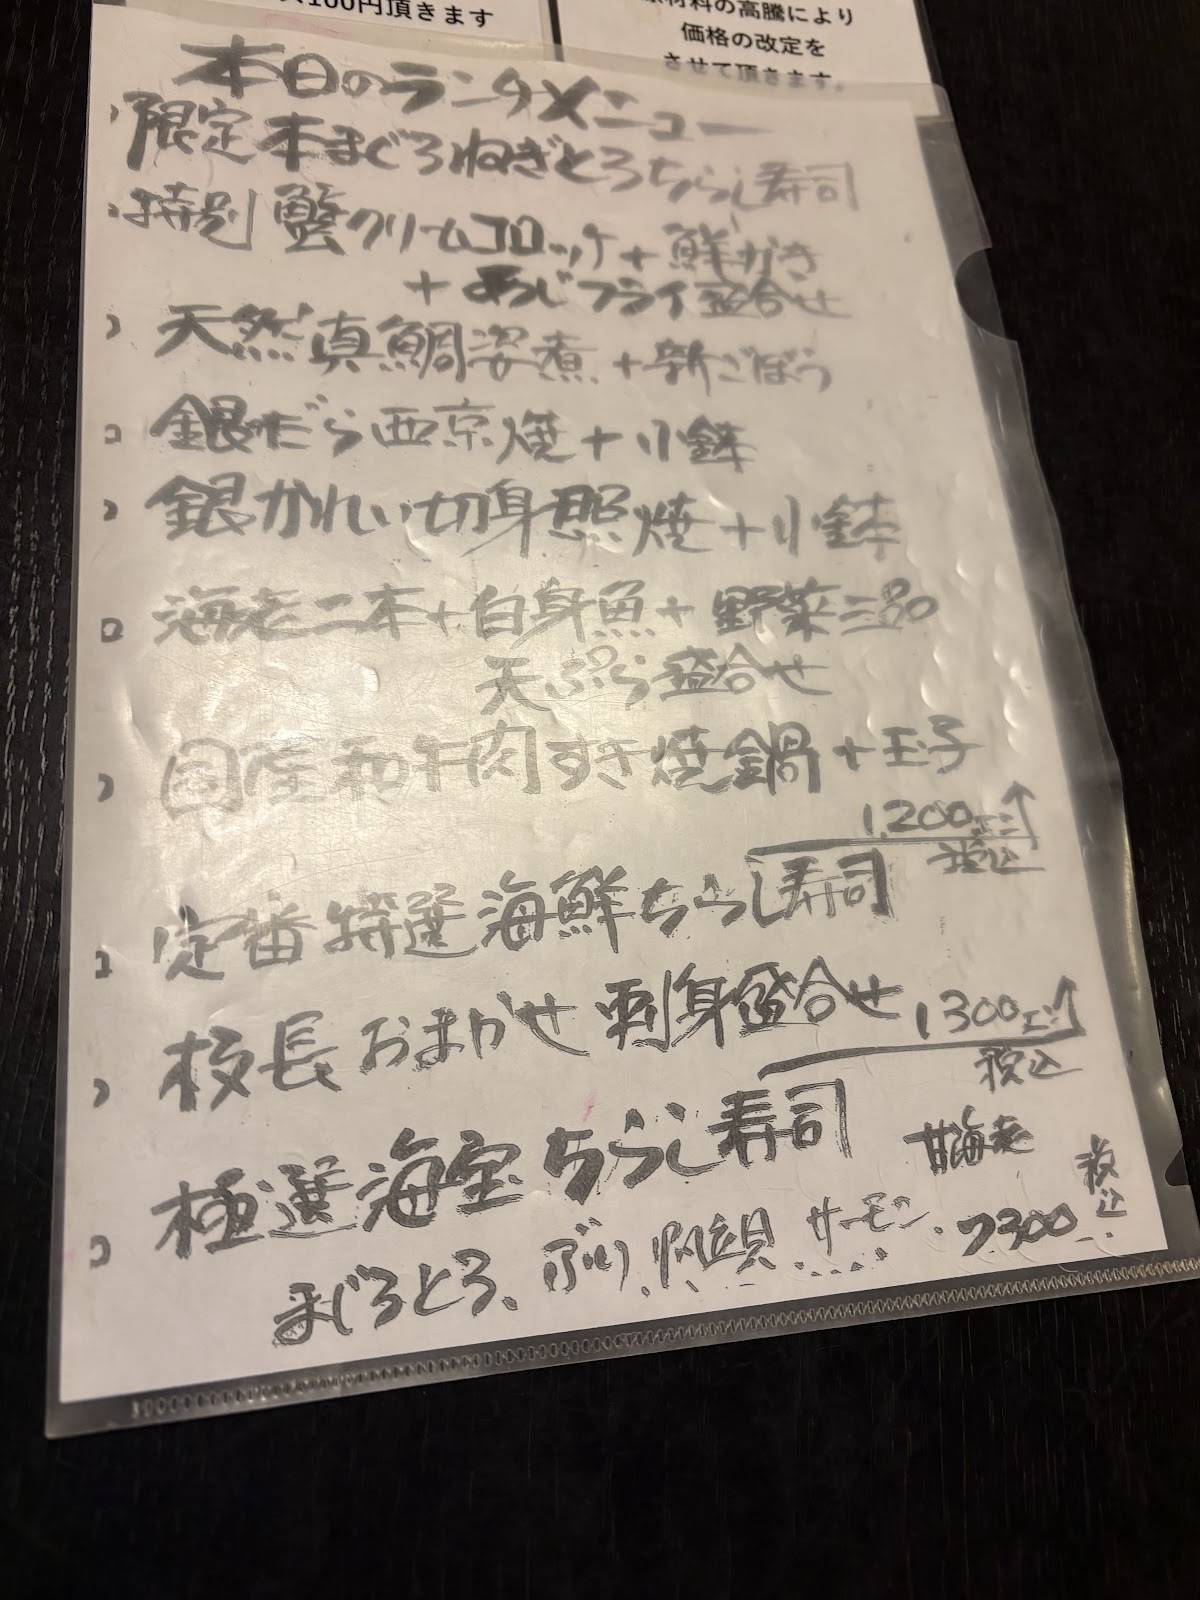 100円頂きます
材料の高騰により
価格の改定を
させて頂きます。
本日のランチメニュー
限定 本まぐろねぎとろちらし寿司
特別 蟹クリームコロッケ+鮮かき
+あじフライ盛合せ
天然真鯛姿煮+新ごぼう
銀だら西京焼+小鉢
銀かれい切身照焼+小鉢
海老二本+白身魚+野菜三品
天ぷら盛合せ
国産和牛肉すき焼鍋+玉子
1,200円
税込
定番特選海鮮ちらし寿司
板長おまかせ刺身盛合せ
1300円
税込
極選海宝ちらし寿司
甘海老
まぐろとろ、ぶり、帆立貝、サーモン、
税込